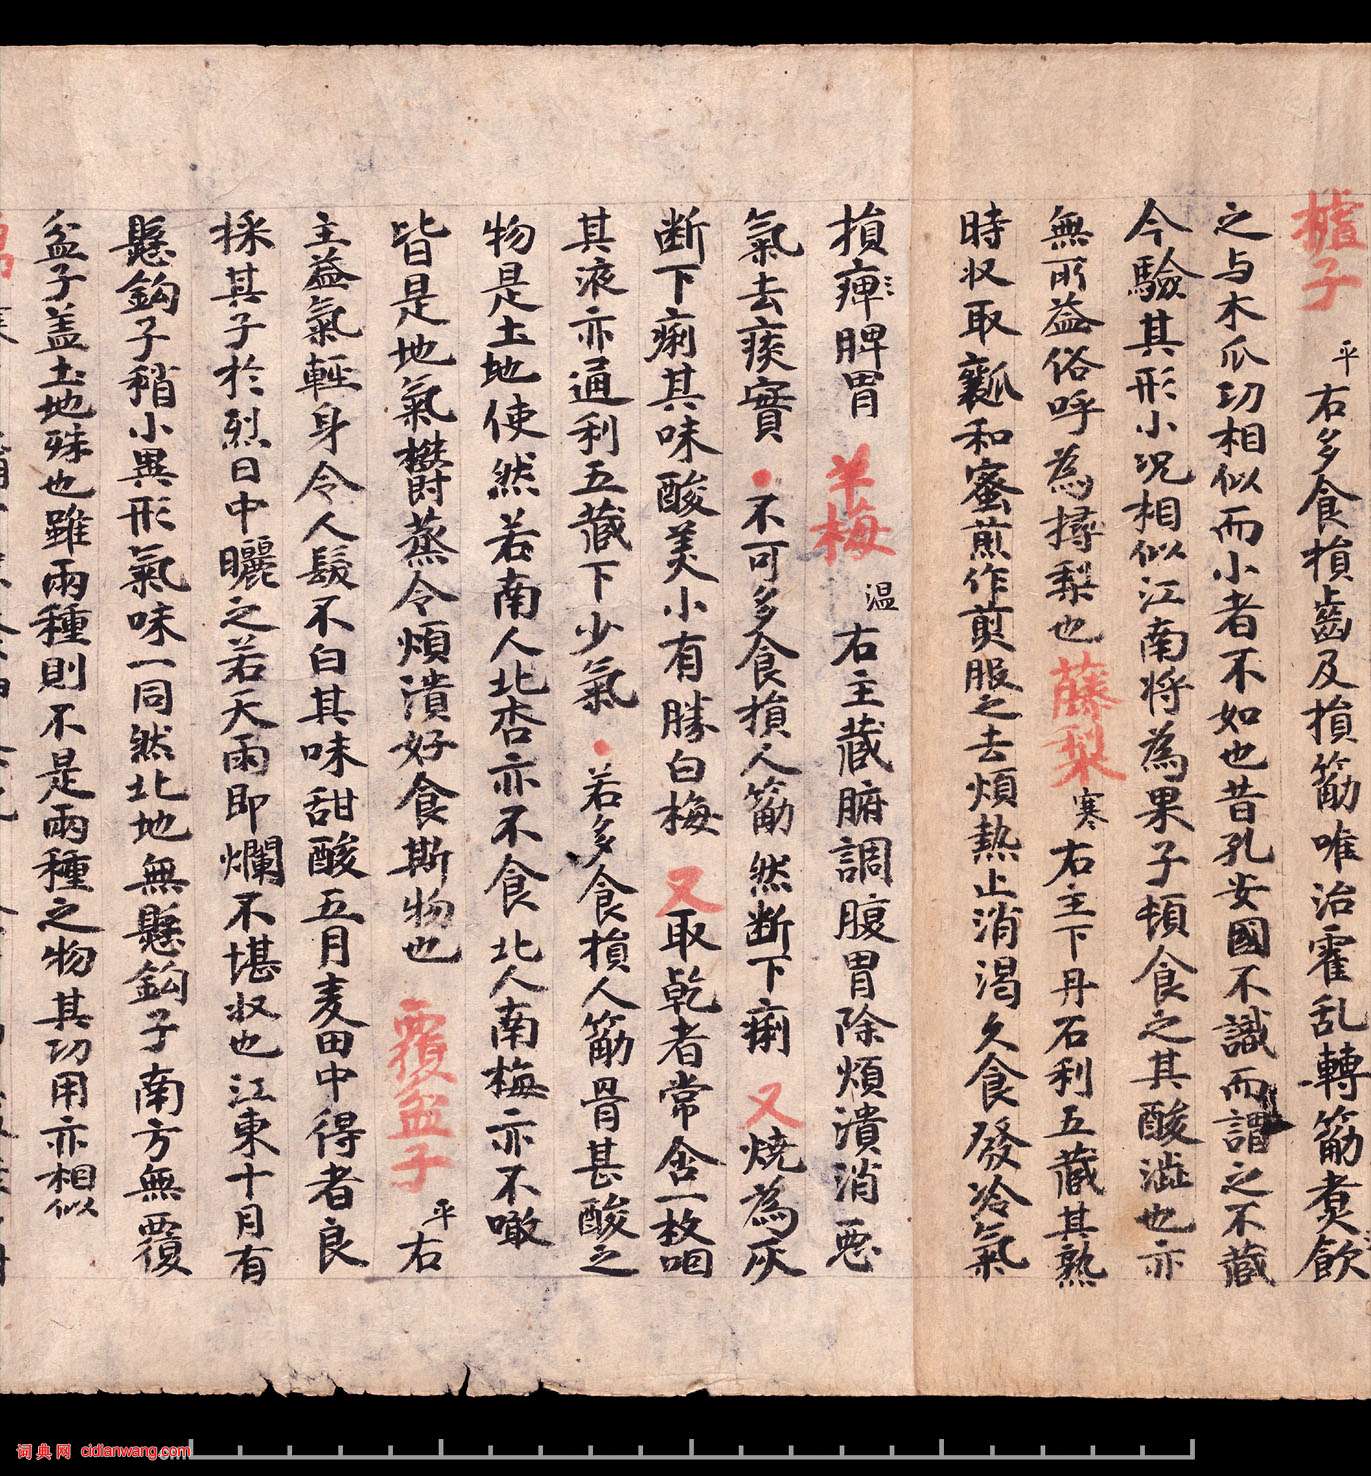 樝子 平 右多食損齒及損筋唯治霍乱轉筋煮飲
之与木瓜功相似而小者不如也昔孔安國不識而謂之不藏
今驗其形小況相似江南将為果子頓食之其酸澁也亦
無所益俗呼為㯡梨也 藤梨 寒 右主下丹石利五藏其熟
時收取瓤和蜜煎作煎服之去煩熱止消渴久食發冷氣
損痺脾胃 羊梅 温 右主藏腑調腹胃除煩潰消悪
氣去痰實 ・不可多食損人筋然断下痢 又燒為灰
断下痢其味酸美小有勝白梅 又取乾者常含一枚咽
其液亦通利五藏下少氣 ・若多食損人筋骨甚酸之
物是土地使然若南人北杏亦不食北人南梅亦不噉
皆是地氣欝蒸令煩潰好食斯物也 覆盆子 平 右
主益氣輕身令人髮不白其味甜酸五月麦田中得者良
採其子於烈日中曬之若天雨即爛不堪收也江東十月有
懸鈎子稍小異形氣味一同然北地無懸鈎子南方無覆
盆子盖土地殊也雖兩種則不是兩種之物其功用亦相似
词典网 cidianwang.com
cm